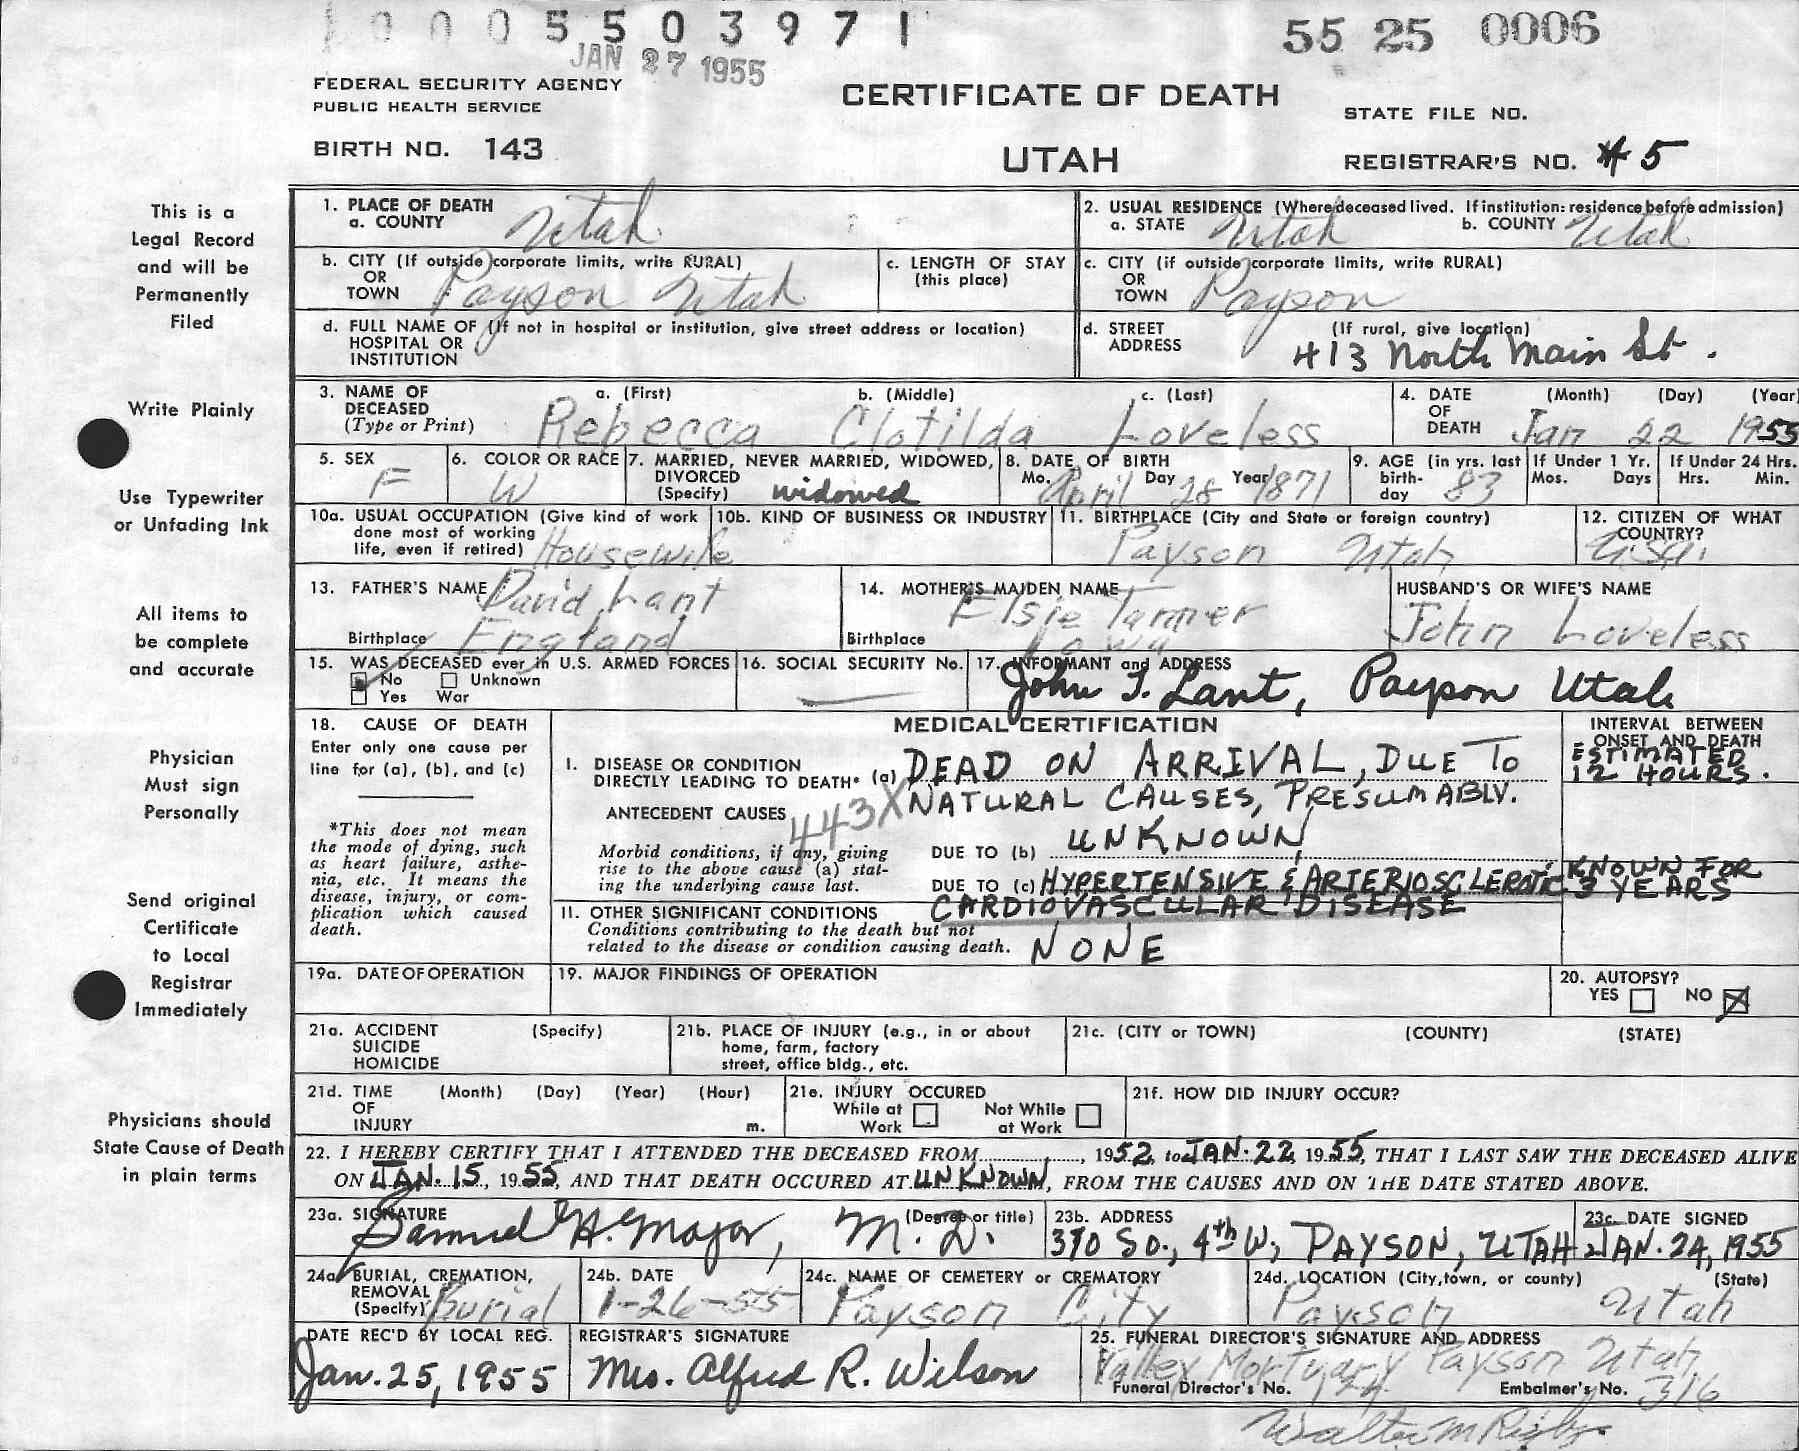 10005503971
55 25 0006
JAN 27 1955
FEDERAL SECURITY AGENCY
PUBLIC HEALTH SERVICE
CERTIFICATE OF DEATH
STATE FILE NO.
BIRTH NO. 143
UTAH
REGISTRAR'S NO. # 5
This is a
Legal Record
and will be
Permanently
Filed
Write Plainly
Use Typewriter
or Unfading Ink
All items to
be complete
and accurate
Physician
Must sign
Personally
Send original
Certificate
to Local
Registrar
Immediately
Physicians should
State Cause of Death
in plain terms
1. PLACE OF DEATH
a. COUNTY Utah
2. USUAL RESIDENCE (Where deceased lived. If institution: residence before admission)
a. STATE Utah b. COUNTY Utah
b. CITY (If outside corporate limits, write RURAL)
OR
TOWN Payson Utah
c. LENGTH OF STAY
(this place)
c. CITY (if outside corporate limits, write RURAL)
OR
TOWN Payson
d. FULL NAME OF (If not in hospital or institution, give street address or location)
HOSPITAL OR
INSTITUTION
d. STREET (If rural, give location)
ADDRESS 413 North Main St.
3. NAME OF a. (First) b. (Middle) c. (Last)
DECEASED
(Type or Print) Rebecca Clotilda Loveless
4. DATE (Month) (Day) (Year)
OF
DEATH Jan 22 1955
5. SEX F
6. COLOR OR RACE W
7. MARRIED, NEVER MARRIED, WIDOWED,
DIVORCED
(Specify) widowed
8. DATE OF BIRTH
Mo. April Day 28 Year 1871
9. AGE (in yrs. last
birth-
day 83
If Under 1 Yr.
Mos. Days
If Under 24 Hrs.
Hrs. Min.
10a. USUAL OCCUPATION (Give kind of work
done most of working
life, even if retired) Housewife
10b. KIND OF BUSINESS OR INDUSTRY
11. BIRTHPLACE (City and State or foreign country)
Payson Utah
12. CITIZEN OF WHAT
COUNTRY?
U.S.A.
13. FATHER'S NAME David Lant
Birthplace England
14. MOTHER'S MAIDEN NAME
Elsie Tanner
Birthplace Iowa
HUSBAND'S OR WIFE'S NAME
John Loveless
15. WAS DECEASED ever in U.S. ARMED FORCES
No Unknown
Yes War
16. SOCIAL SECURITY No.
17. INFORMANT and ADDRESS
John T. Lant, Payson Utah
18. CAUSE OF DEATH
Enter only one cause per
line for (a), (b), and (c)
*This does not mean
the mode of dying, such
as heart failure, asthe-
nia, etc. It means the
disease, injury, or com-
plication which caused
death.
MEDICAL CERTIFICATION
INTERVAL BETWEEN
ONSET AND DEATH
I. DISEASE OR CONDITION
DIRECTLY LEADING TO DEATH* (a) DEAD ON ARRIVAL, DUE TO
NATURAL CAUSES, PRESUMABLY.
ESTIMATED
12 HOURS.
ANTECEDENT CAUSES 443X
Morbid conditions, if any, giving
rise to the above cause (a) stat-
ing the underlying cause last.
DUE TO (b) UNKNOWN
DUE TO (c) HYPERTENSIVE & ARTERIOSCLEROTIC
CARDIOVASCULAR DISEASE
KNOWN FOR
3 YEARS
II. OTHER SIGNIFICANT CONDITIONS
Conditions contributing to the death but not
related to the disease or condition causing death. NONE
19a. DATE OF OPERATION
19. MAJOR FINDINGS OF OPERATION
20. AUTOPSY?
YES NO
21a. ACCIDENT (Specify)
SUICIDE
HOMICIDE
21b. PLACE OF INJURY (e.g., in or about
home, farm, factory
street, office bldg., etc.
21c. (CITY or TOWN) (COUNTY) (STATE)
21d. TIME (Month) (Day) (Year) (Hour)
OF
INJURY m.
21e. INJURY OCCURED
While at Not While
Work at Work
21f. HOW DID INJURY OCCUR?
22. I HEREBY CERTIFY THAT I ATTENDED THE DECEASED FROM............, 1952, to JAN. 22, 1955, THAT I LAST SAW THE DECEASED ALIVE
ON JAN. 15, 1955, AND THAT DEATH OCCURED AT UNKNOWN, FROM THE CAUSES AND ON THE DATE STATED ABOVE.
23a. SIGNATURE (Degree or title)
Samuel H. Major, M.D.
23b. ADDRESS
370 SO., 4th W., PAYSON, UTAH
23c. DATE SIGNED
JAN. 24, 1955
24a. BURIAL, CREMATION,
REMOVAL
(Specify) Burial
24b. DATE
1-26-55
24c. NAME OF CEMETERY or CREMATORY
Payson City
24d. LOCATION (City, town, or county) (State)
Payson Utah
DATE REC'D BY LOCAL REG.
Jan. 25, 1955
REGISTRAR'S SIGNATURE
Mrs. Alfred R. Wilson
25. FUNERAL DIRECTOR'S SIGNATURE AND ADDRESS
Valley Mortuary Payson Utah
Funeral Director's No. Embalmer's No. 316
Walter M Rigby